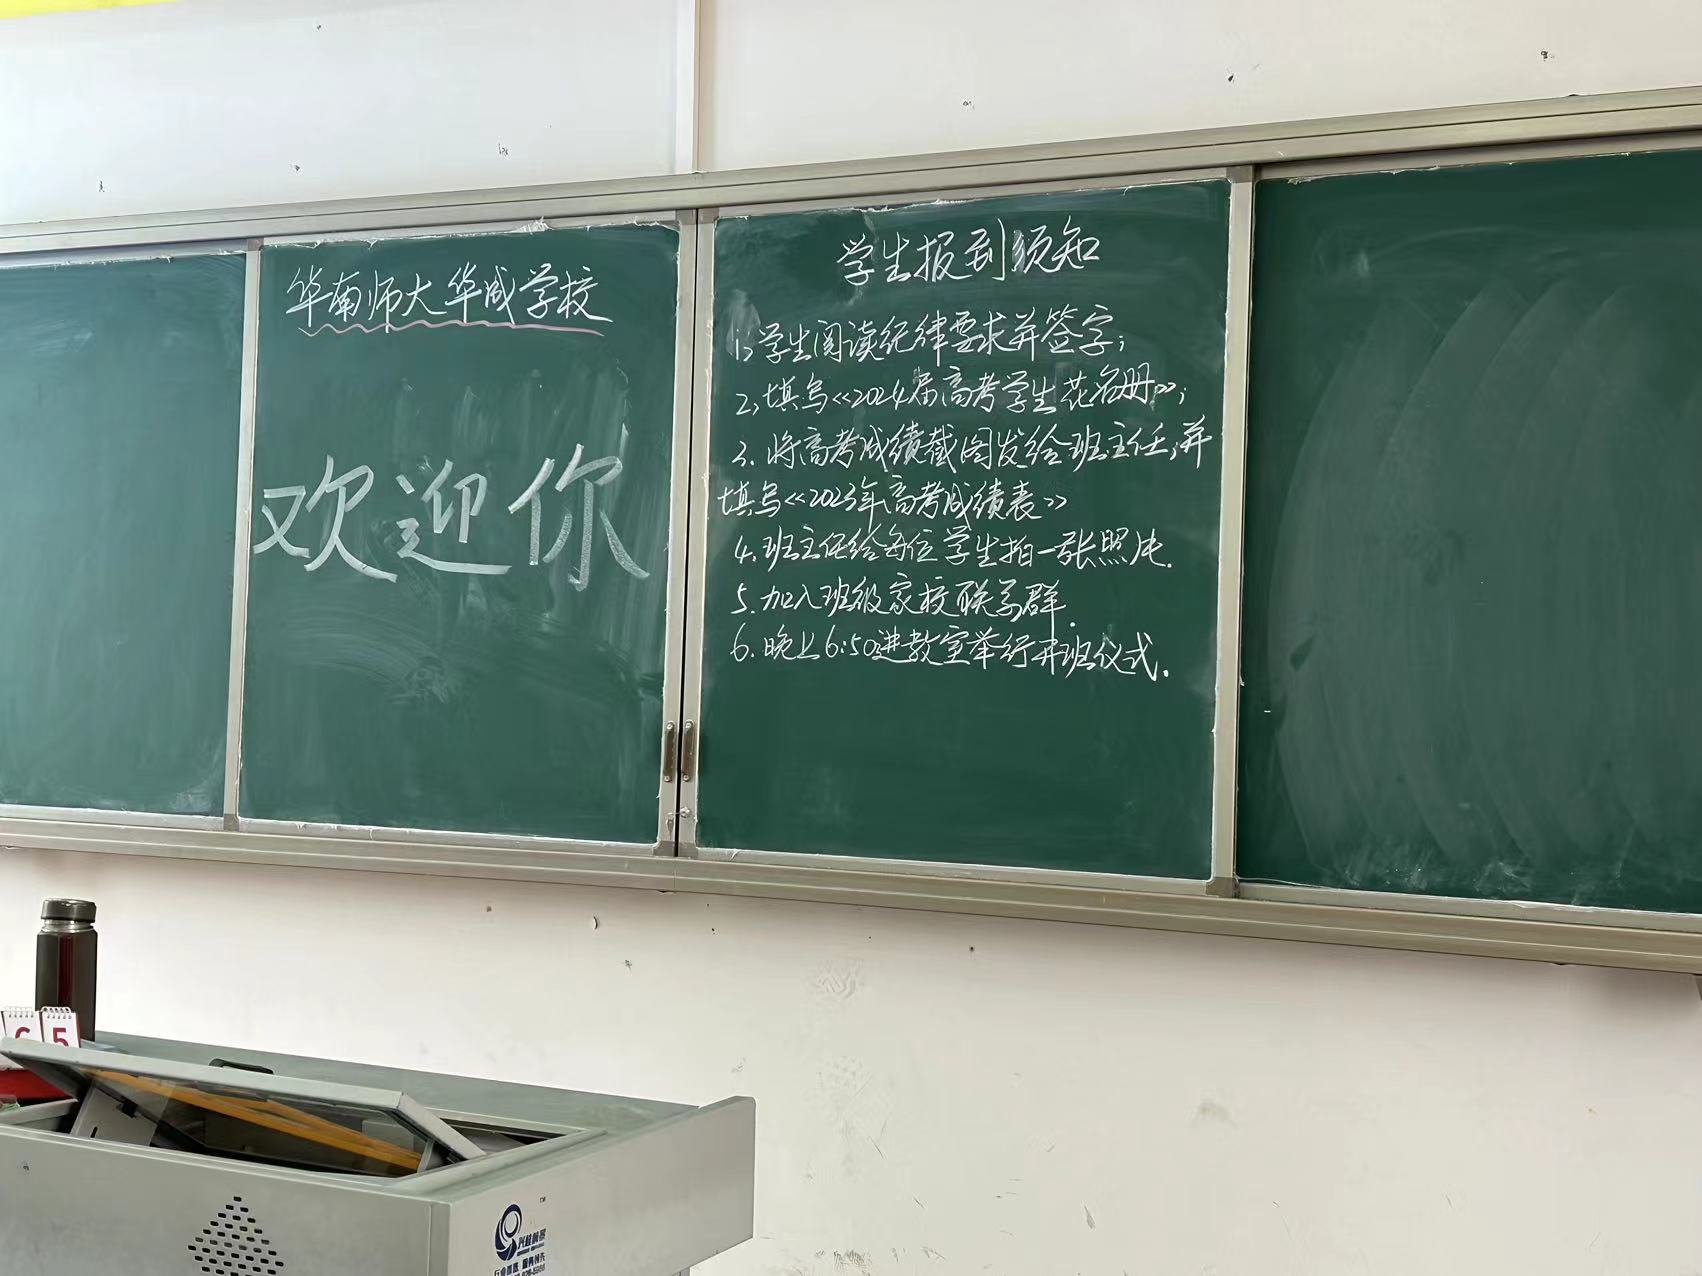 华南师大华成学校
欢迎你
学生报到须知
1、学生阅读纪律要求并签字；
2、填写《2024届高考学生花名册》；
3、将高考成绩截图发给班主任，并
填写《2023年高考成绩表》
4、班主任给每位学生拍一张照片.
5、加入班级家校联系群.
6、晚上6:50进教室举行开班仪式.
6 5